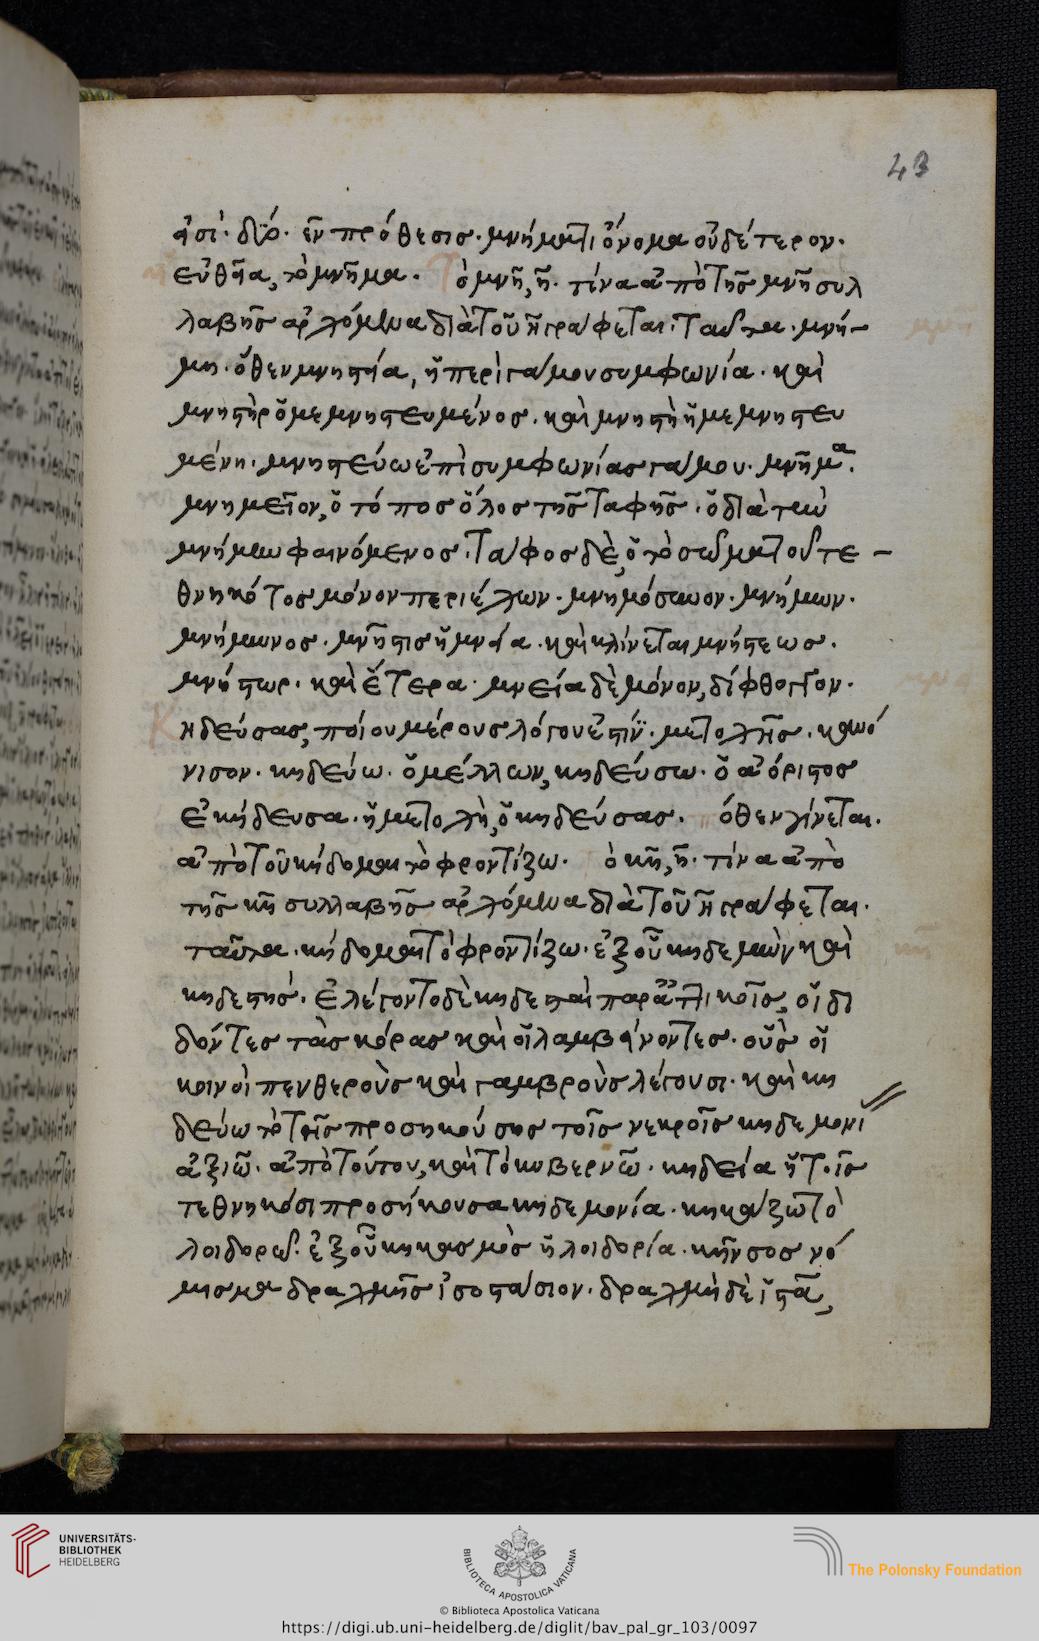 43
εἰσὶ· διό. ἐν πρόθεσις. μνήματι ὄνομα οὐδέτερον.
εὐθεῖα, τὸ μνῆμα. Τὸ μνῆ, η. τίνα ἀπὸ τῆς μνῆ συλ
λαβῆς ἀρχόμενα διὰ τοῦ η γράφεται. ταῦτα. μνή-
μη. ὅθεν μνηστεία, ἡ περὶ γάμου συμφωνία. καὶ
μνηστὴρ ὁ μεμνηστευμένος. καὶ μνηστὴ ἡ μεμνηστευ
μένη. μνηστεύω ἐπὶ συμφωνίας γάμου. μνῆμα.
μνημεῖον, ὁ τόπος ὅλος τῆς ταφῆς. ὁ διὰ τῶν
μνήμων φαινόμενος. τάφος δὲ, ὁ τὸ σῶμα τοῦ τε-
θνηκότος μόνον περιέχων. μνημόσυνον. μνήμων.
μνήμονος. μνῆστις ἡ μνεία. καὶ κλίνεται μνήστεως.
μνήστωρ. καὶ ἕτερα. μνεία δὲ μόνον, δίφθογγον.
Κηδεύσας, ποίου μέρους λόγου ἐστίν. μετοχῆς. κανό
νισον. κηδεύω. ὁ μέλλων, κηδεύσω. ὁ ἀόριστος
ἐκήδευσα. ἡ μετοχὴ, ὁ κηδεύσας. ὅθεν γίνεται.
ἀπὸ τοῦ κήδομαι τὸ φροντίζω. ὁ κῆ, η. τίνα ἀπὸ
τῆς κῆ συλλαβῆς ἀρχόμενα διὰ τοῦ η γράφεται.
ταῦτα. κήδομαι τὸ φροντίζω. ἐξ οὗ κηδεμὼν καὶ
κηδεστής. ἐλέγοντο δὲ κηδεσταὶ παρὰ ἀττικοῖς, οἱ δι
δόντες τὰς κόρας καὶ οἱ λαμβάνοντες. οὓς οἱ
κοινοὶ πενθεροὺς καὶ γαμβροὺς λέγουσι. καὶ κη
δεύω τὸ τῆς προσηκούσης τοῖς νεκροῖς κηδεμονί
ἀξιῶ. ἀπὸ τούτου, καὶ τὸ κυβερνῶ. κηδεία ἡ τοῖς
τεθνηκόσι προσήκουσα κηδεμονία. κηκάζω τὸ
λοιδορῶ. ἐξ οὗ κηκασμὸς ἡ λοιδορία. κῆνσος νό
μισμα δραχμῆς ἰσοστάσιον. δραχμὴ δὲ ἱστᾶ,
UNIVERSITÄTS-
BIBLIOTHEK
HEIDELBERG
BIBLIOTECA APOSTOLICA VATICANA
The Polonsky Foundation
© Biblioteca Apostolica Vaticana
https://digi.ub.uni-heidelberg.de/diglit/bav_pal_gr_103/0097